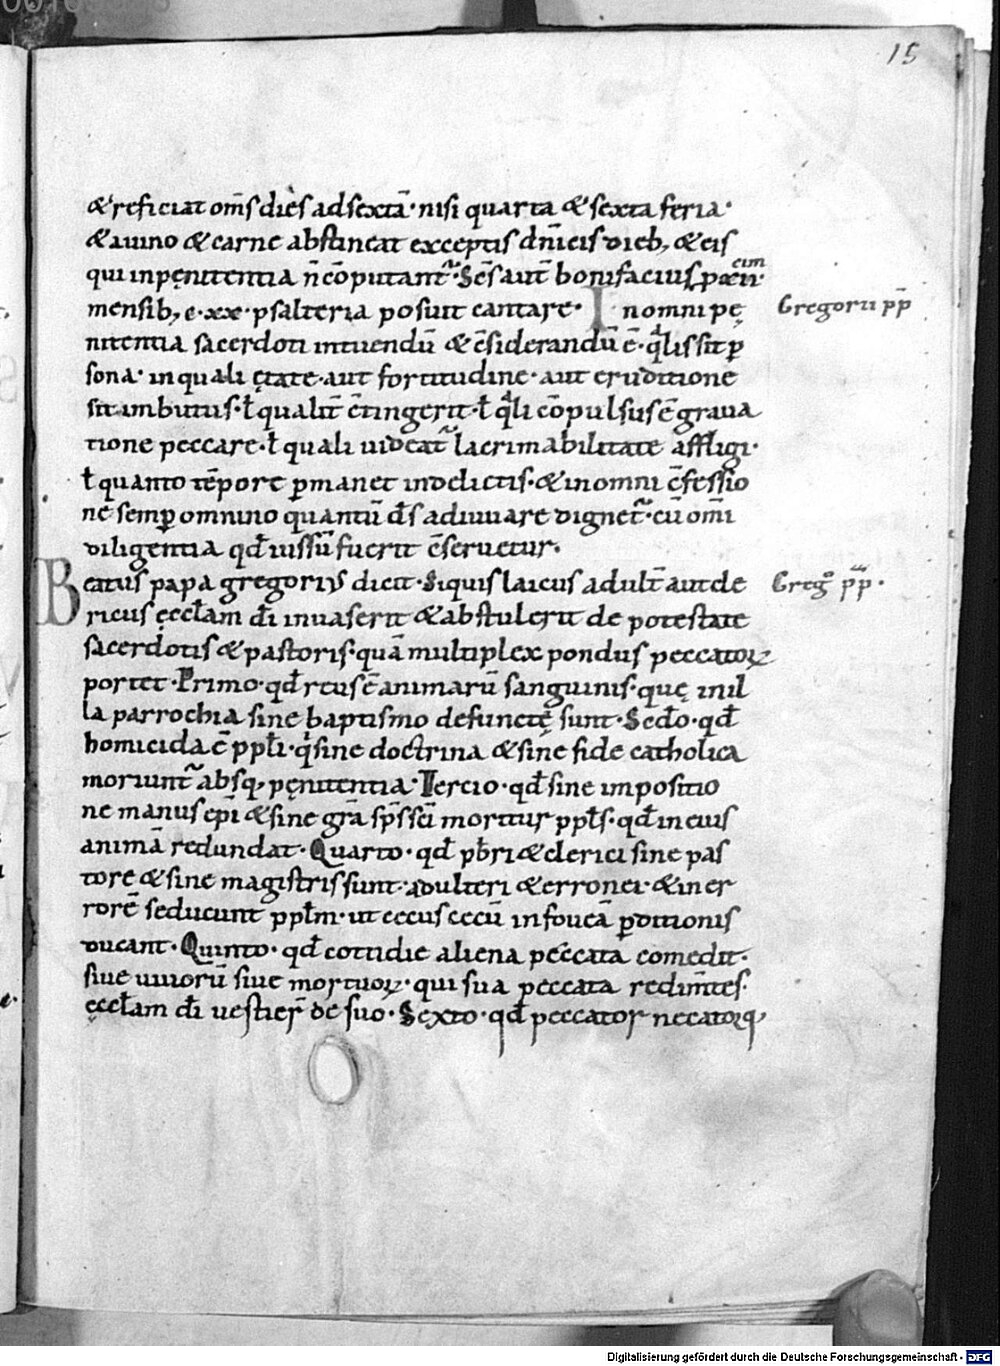 15
& reficiat om̄s dies ad sextā· nisi quarta & sexta feria·
& a uino & carne abstineat exceptis dn̄icis dieb; & eis
qui in pęnitentia n̄ cōputant᷑· Sc̄s aut̄ bonifacius p
mensib; c·xx·psalteria posuit cantare· In omni pę
Gregorii pp̄
nitentia sacerdoti intuendū & c̄siderandū ē· qͣlis sit ꝑ
sona· in quali ętate· aut fortitudine· aut eruditione
sit imbutus· ł qualit̄ c̄tingerit· ł qͣli cōpulsus ē graua
tione peccare· ł quali uideat᷑ lacrimabilitate affligi·
ł quanto tēpore ꝑmanet in delictis· & in omni c̄fessio
ne semꝑ omnino quantū d̄s adiuuare dignet᷑· cū om̄i
diligentia qđ iussū fuerit c̄seruetur·
Beatus papa gregorius dicit· Siquis laicus adult̄ aut de
Greg᷒ pp̄·
ricus ęccłam dī inuaserit & abstulerit de potestate
sacerdotis & pastoris· quā multiplex pondus peccatoꝝ
portet· Primo· qđ reus ē animarū sanguinis· quę in il
la parrochia sine baptismo defunctę sunt· Sedo· qđ
homicida ē ppłi· qͥ sine doctrina & sine fide catholica
moriunt᷑ absq; pęnitentia· Tercio· qđ sine impositio
ne manus epī & sine grā sp̄s sc̄i moritur ppłs· qđ in eius
animā redundat· Quarto· qđ pb̄ri & clerici sine pas
tore & sine magistris sunt· adulteri & erronei· & in er
rorē seducunt ppłm· ut cecus cecū in foueā ꝑditionis
ducant· Quinto· qđ cottidie aliena peccata comedit·
siue uiuorū siue mortuoꝝ· qui sua peccata redim̄tes
ęccłam dī uestier̄ de suo· Sexto· qđ peccator necatorq;
Digitalisierung gefördert durch die Deutsche Forschungsgemeinschaft - DFG